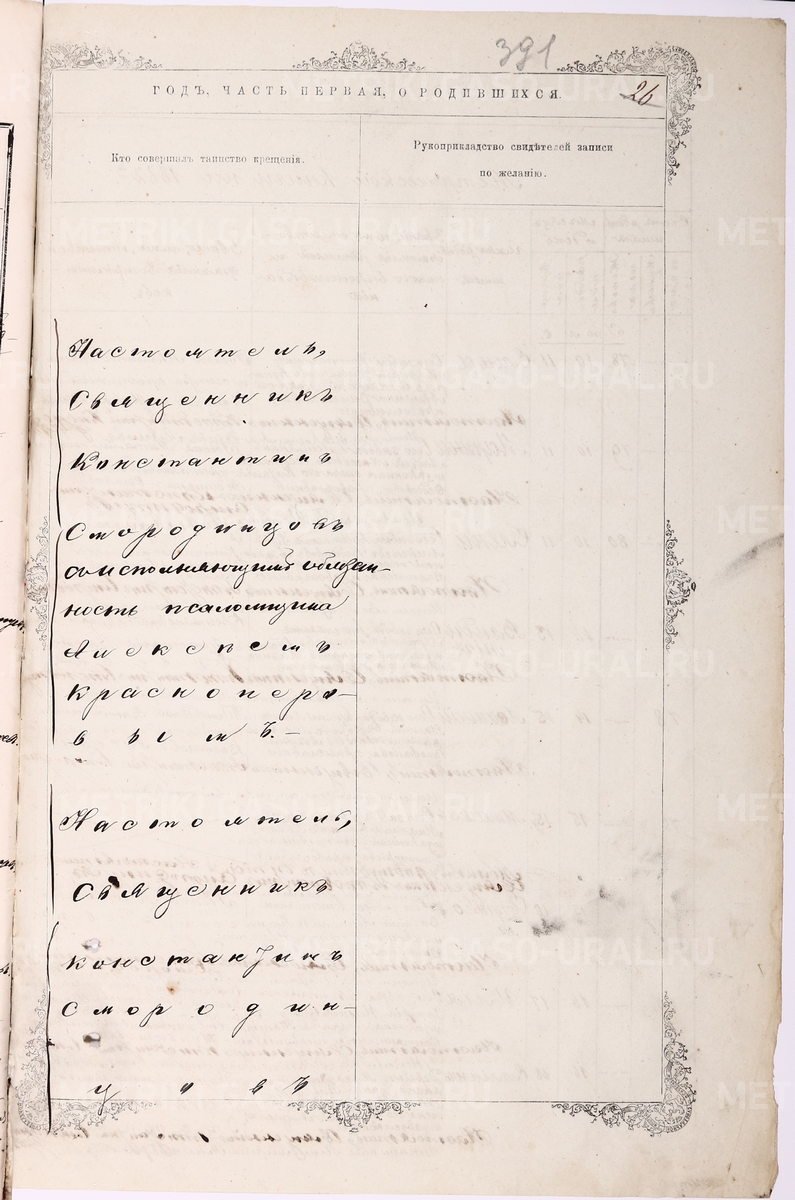 391
ГОДЪ, ЧАСТЬ ПЕРВАЯ, О РОДИВШИХСЯ.
26
Кто совершалъ таинство крещенія.
Рукоприкладство свидѣтелей записи
по желанію.
Настоятель,
Священникъ
Константинъ
Смородинцовъ
съ исполняющимъ обязан-
ность псаломщика
Алексѣемъ
Красноперо-
вымъ.-
Настоятель,
Священникъ
Константинъ
Смородин-
цовъ
METRIKI.GASO-URAL.RU